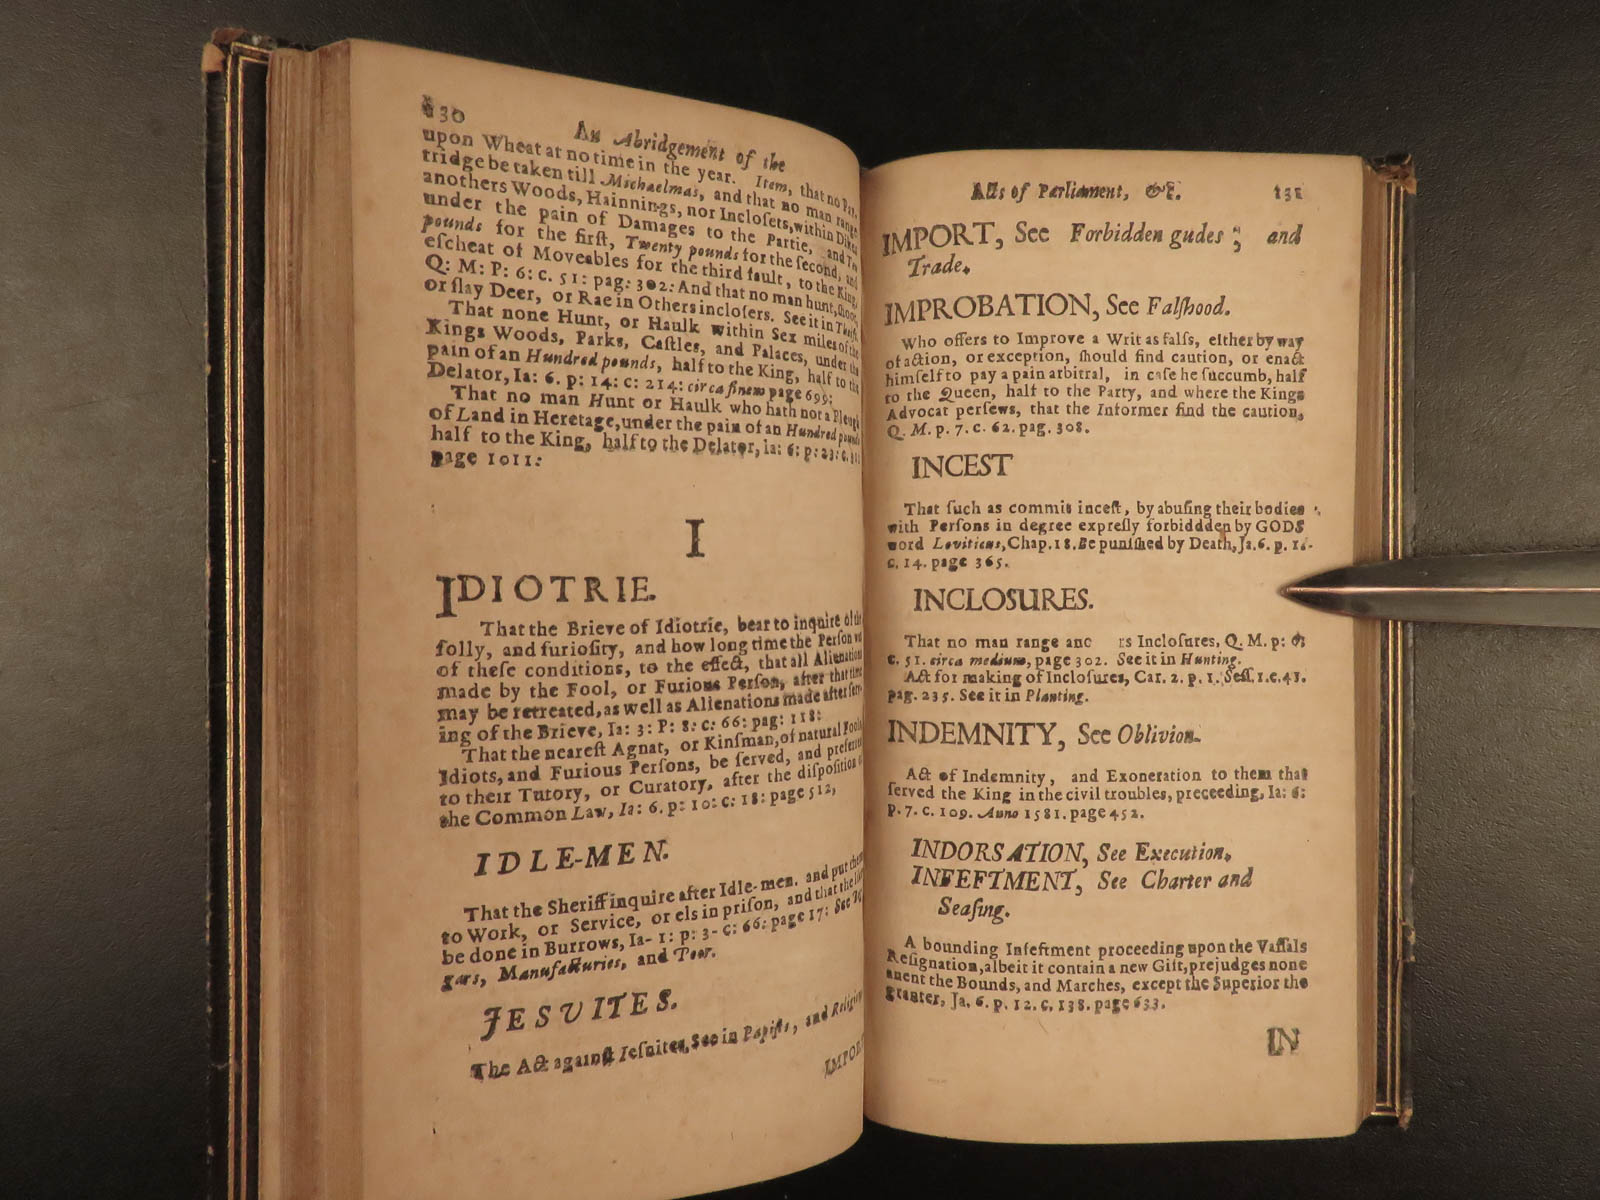 130
An Abridgement of the
upon Wheat at no time in the year. Item, that no Par-
tridge be taken till Michaelmas, and that no man range
anothers Woods, Hainnings, nor Incloſets, within Dikes
under the pain of Damages to the Partie, and Ten
pounds for the firſt, Twenty pounds for the ſecond, and
eſcheat of Moveables for the third fault, to the King,
Q: M: P: 6: c. 51: pag: 302: And that no man hunt, ſhoot,
or ſlay Deer, or Rae in Others incloſers. See it in Thift.
That none Hunt, or Haulk within Sex miles of the
Kings Woods, Parks, Caſtles, and Palaces, under the
pain of an Hundred pounds, half to the King, half to the
Delator, Ia: 6. p: 14: c: 214: circa finem page 699:
That no man Hunt or Haulk who hath not a Pleugh
of Land in Heretage, under the pain of an Hundred pounds
half to the King, half to the Delator, Ia: 6: p: 23: c.
page 1011:
I
IDIOTRIE.
That the Brieve of Idiotrie, bear to inquire of the
folly, and furioſity, and how long time the Perſon was
of theſe conditions, to the effect, that all Alienations
made by the Fool, or Furious Perſon, after that time
may be retreated, as well as Alienations made after ſerv-
ing of the Brieve, Ia: 3: P: 8: c: 66: pag: 118:
That the neareſt Agnat, or Kinſman, of natural Fools,
Idiots, and Furious Perſons, be ſerved, and preferred
to their Tutory, or Curatory, after the diſpoſition of
the Common Law, Ia: 6. p: 10: c: 18: page 512,
IDLE-MEN.
That the Sheriff inquire after Idle-men. and put them
to Work, or Service, or els in priſon, and that the like
be done in Burrows, Ia- 1: p: 3- c: 66: page 17: See
gars, Manufacturies, and Poor.
JESUITES.
The Act againſt Ieſuites, See in Papiſts, and Religion
IMPORT
Acts of Parliament, &c. 131
IMPORT, See Forbidden gudes ; and
Trade.
IMPROBATION, See Falſhood.
Who offers to Improve a Writ as falſs, either by way
of action, or exception, ſhould find caution, or enact
himſelf to pay a pain arbitral, in caſe he ſuccumb, half
to the Queen, half to the Party, and where the Kings
Advocat perſews, that the Informer find the caution,
Q. M. p. 7. c. 62. pag. 308.
INCEST
That ſuch as commit inceſt, by abuſing their bodies
with Perſons in degree expreſly forbiddden by GODS
word Leviticus, Chap. 18. Be puniſhed by Death, Ja. 6. p. 1.
c. 14. page 365.
INCLOSURES.
That no man range ano rs Incloſures, Q. M. p: 6:
c. 51. circa medium, page 302. See it in Hunting.
Act for making of Incloſures, Car. 2. p. 1. Seſſ. 1. c. 41.
pag. 235. See it in Planting.
INDEMNITY, See Oblivion.
Act of Indemnity, and Exoneration to them that
ſerved the King in the civil troubles, preceeding, Ia: 6:
p. 7. c. 109. Anno 1581. page 452.
INDORSATION, See Execution.
INFEFTMENT, See Charter and
Seaſing.
A bounding Infeftment proceeding upon the Vaſſals
Reſignation, albeit it contain a new Gift, prejudges none
anent the Bounds, and Marches, except the Superior the
granter, Ja. 6. p. 12. c. 138. page 633.
IN